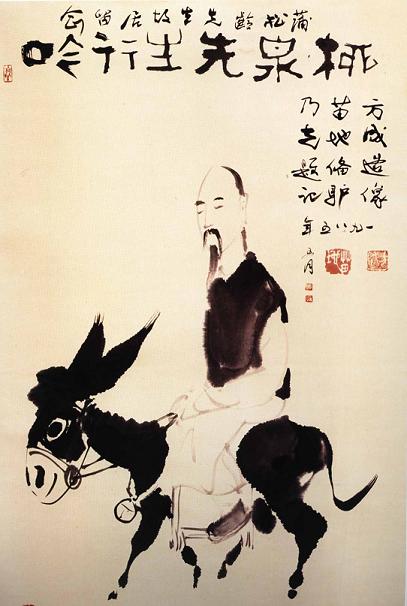 蒲松齡先生故居留念
柳泉先生行吟
方成造像
苗地備驴
乃光题记
一九八五年五月